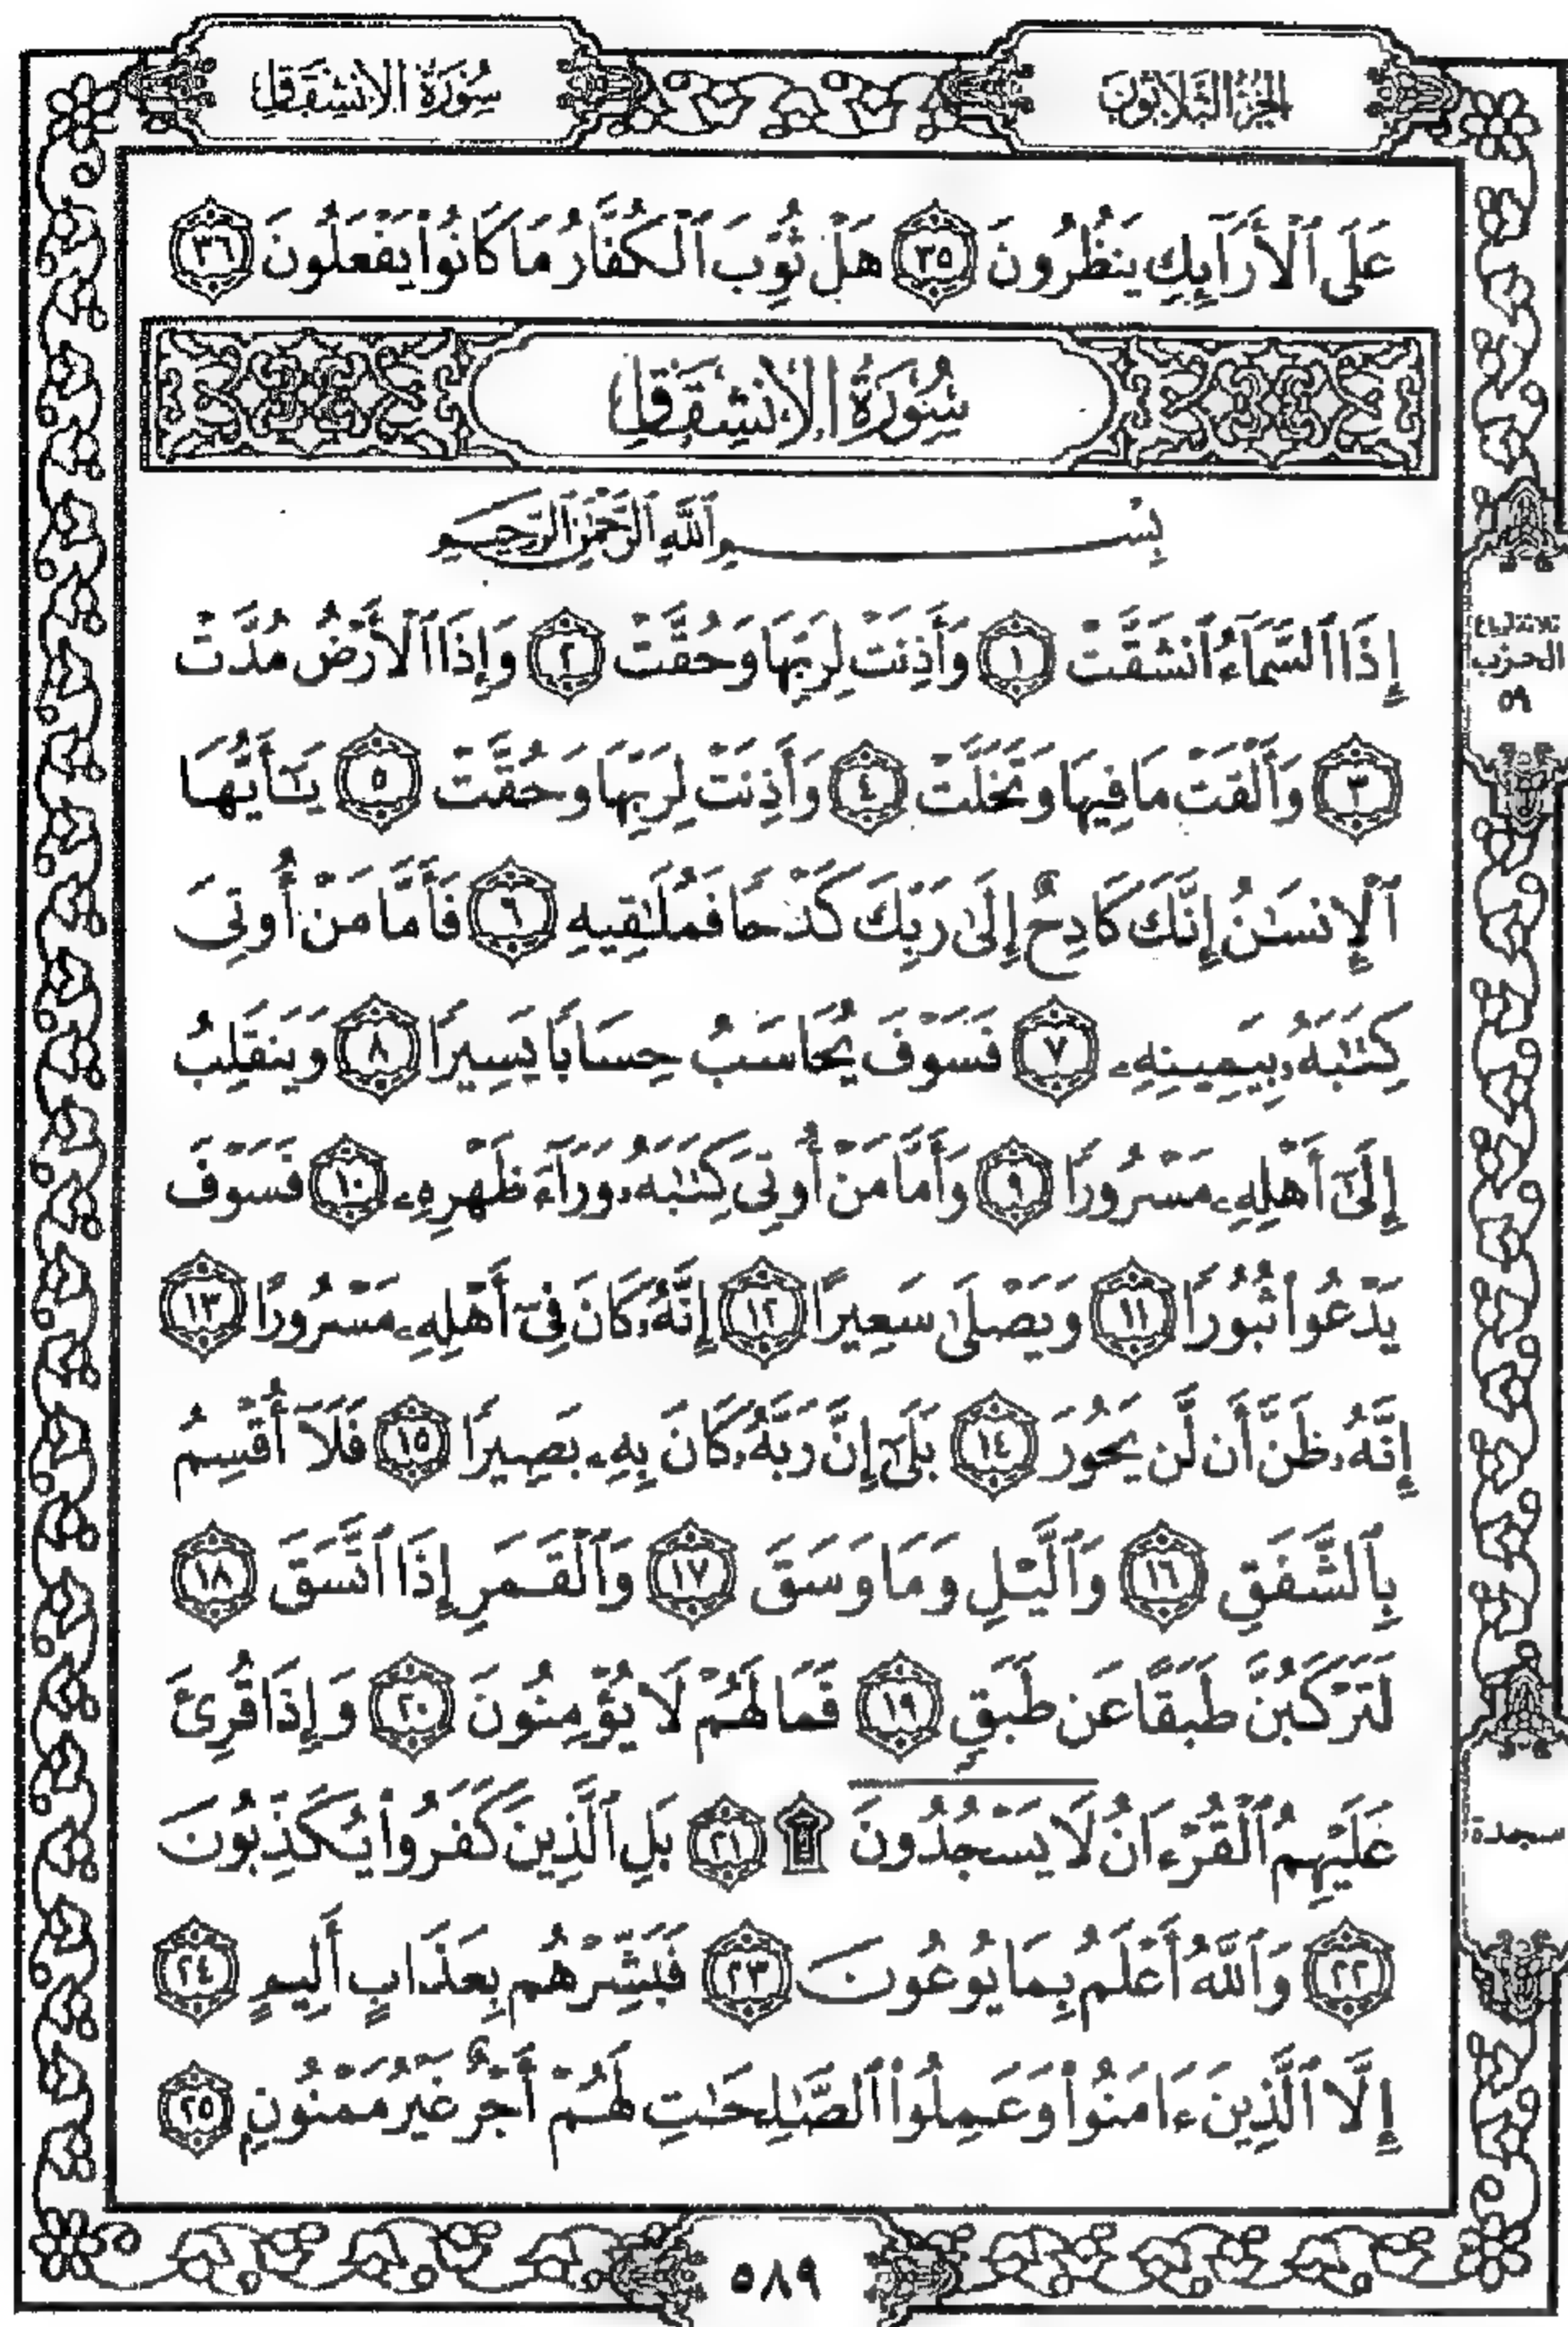 الجزء الثلاثون
سورة الانشقاق
عَلَى ٱلْأَرَآئِكِ يَنظُرُونَ ٣٥ هَلْ ثُوِّبَ ٱلْكُفَّارُ مَا كَانُوا۟ يَفْعَلُونَ ٣٦
سُورَةُ الانشِقَاقِ
بِسْمِ ٱللَّهِ ٱلرَّحْمَٰنِ ٱلرَّحِيمِ
إِذَا ٱلسَّمَآءُ ٱنشَقَّتْ ١ وَأَذِنَتْ لِرَبِّهَا وَحُقَّتْ ٢ وَإِذَا ٱلْأَرْضُ مُدَّتْ
٣ وَأَلْقَتْ مَا فِيهَا وَتَخَلَّتْ ٤ وَأَذِنَتْ لِرَبِّهَا وَحُقَّتْ ٥ يَٰٓأَيُّهَا
ٱلْإِنسَٰنُ إِنَّكَ كَادِحٌ إِلَىٰ رَبِّكَ كَدْحًا فَمُلَٰقِيهِ ٦ فَأَمَّا مَنْ أُوتِىَ
كِتَٰبَهُۥ بِيَمِينِهِۦ ٧ فَسَوْفَ يُحَاسَبُ حِسَابًا يَسِيرًا ٨ وَيَنقَلِبُ
إِلَىٰٓ أَهْلِهِۦ مَسْرُورًا ٩ وَأَمَّا مَنْ أُوتِىَ كِتَٰبَهُۥ وَرَآءَ ظَهْرِهِۦ ١٠ فَسَوْفَ
يَدْعُوا۟ ثُبُورًا ١١ وَيَصْلَىٰ سَعِيرًا ١٢ إِنَّهُۥ كَانَ فِىٓ أَهْلِهِۦ مَسْرُورًا ١٣
إِنَّهُۥ ظَنَّ أَن لَّن يَحُورَ ١٤ بَلَىٰٓ إِنَّ رَبَّهُۥ كَانَ بِهِۦ بَصِيرًا ١٥ فَلَآ أُقْسِمُ
بِٱلشَّفَقِ ١٦ وَٱلَّيْلِ وَمَا وَسَقَ ١٧ وَٱلْقَمَرِ إِذَا ٱتَّسَقَ ١٨
لَتَرْكَبُنَّ طَبَقًا عَن طَبَقٍ ١٩ فَمَا لَهُمْ لَا يُؤْمِنُونَ ٢٠ وَإِذَا قُرِئَ
عَلَيْهِمُ ٱلْقُرْءَانُ لَا يَسْجُدُونَ ۩ ٢١ بَلِ ٱلَّذِينَ كَفَرُوا۟ يُكَذِّبُونَ
٢٢ وَٱللَّهُ أَعْلَمُ بِمَا يُوعُونَ ٢٣ فَبَشِّرْهُم بِعَذَابٍ أَلِيمٍ ٢٤
إِلَّا ٱلَّذِينَ ءَامَنُوا۟ وَعَمِلُوا۟ ٱلصَّٰلِحَٰتِ لَهُمْ أَجْرٌ غَيْرُ مَمْنُونٍۭ ٢٥
ثلاثة أرباع
الحزب
٥٩
سجدة
٥٨٩